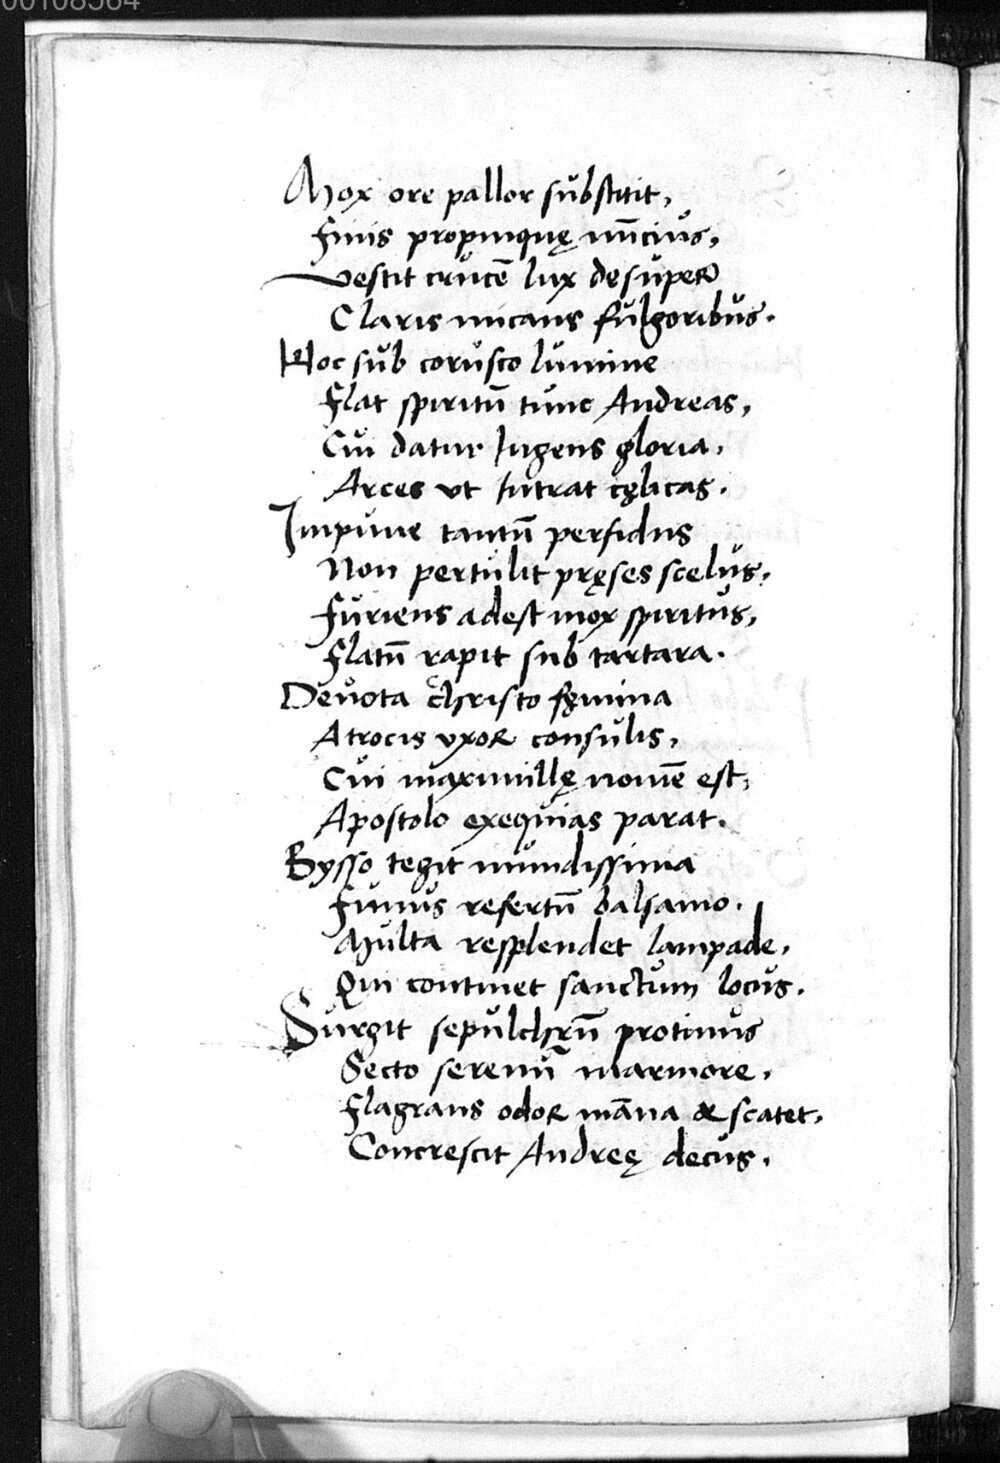 00108564
Mox ore pallor substitit,
Finis propinquę nu̅cius,
Vestit cruce̅ lux desuper
Claris micans fulgoribus.
Hoc sub corusco lumine
Flat spiritu̅ tunc Andreas,
Cui datur Ingens gloria,
Arces vt Intrat cęlicas.
Impune tantu̅ perfidus
Non pertulit pręses scelus,
Furiens adest mox spiritus,
Flatu̅ rapit sub tartara.
Deuota christo fęmina
Atrocis vxor consulis,
Cui maximillę nome̅ est,
Apostolo exequias parat.
Bysso tegit mundissima
Funus refertu̅ balsamo.
Multa resplendet lampade,
Qui continet sanctum locus.
Surgit sepulchru̅ protinus
Secto serenu̅ marmore,
Flagrans odor ma̅na & scatet,
Concrescit Andreę decus.